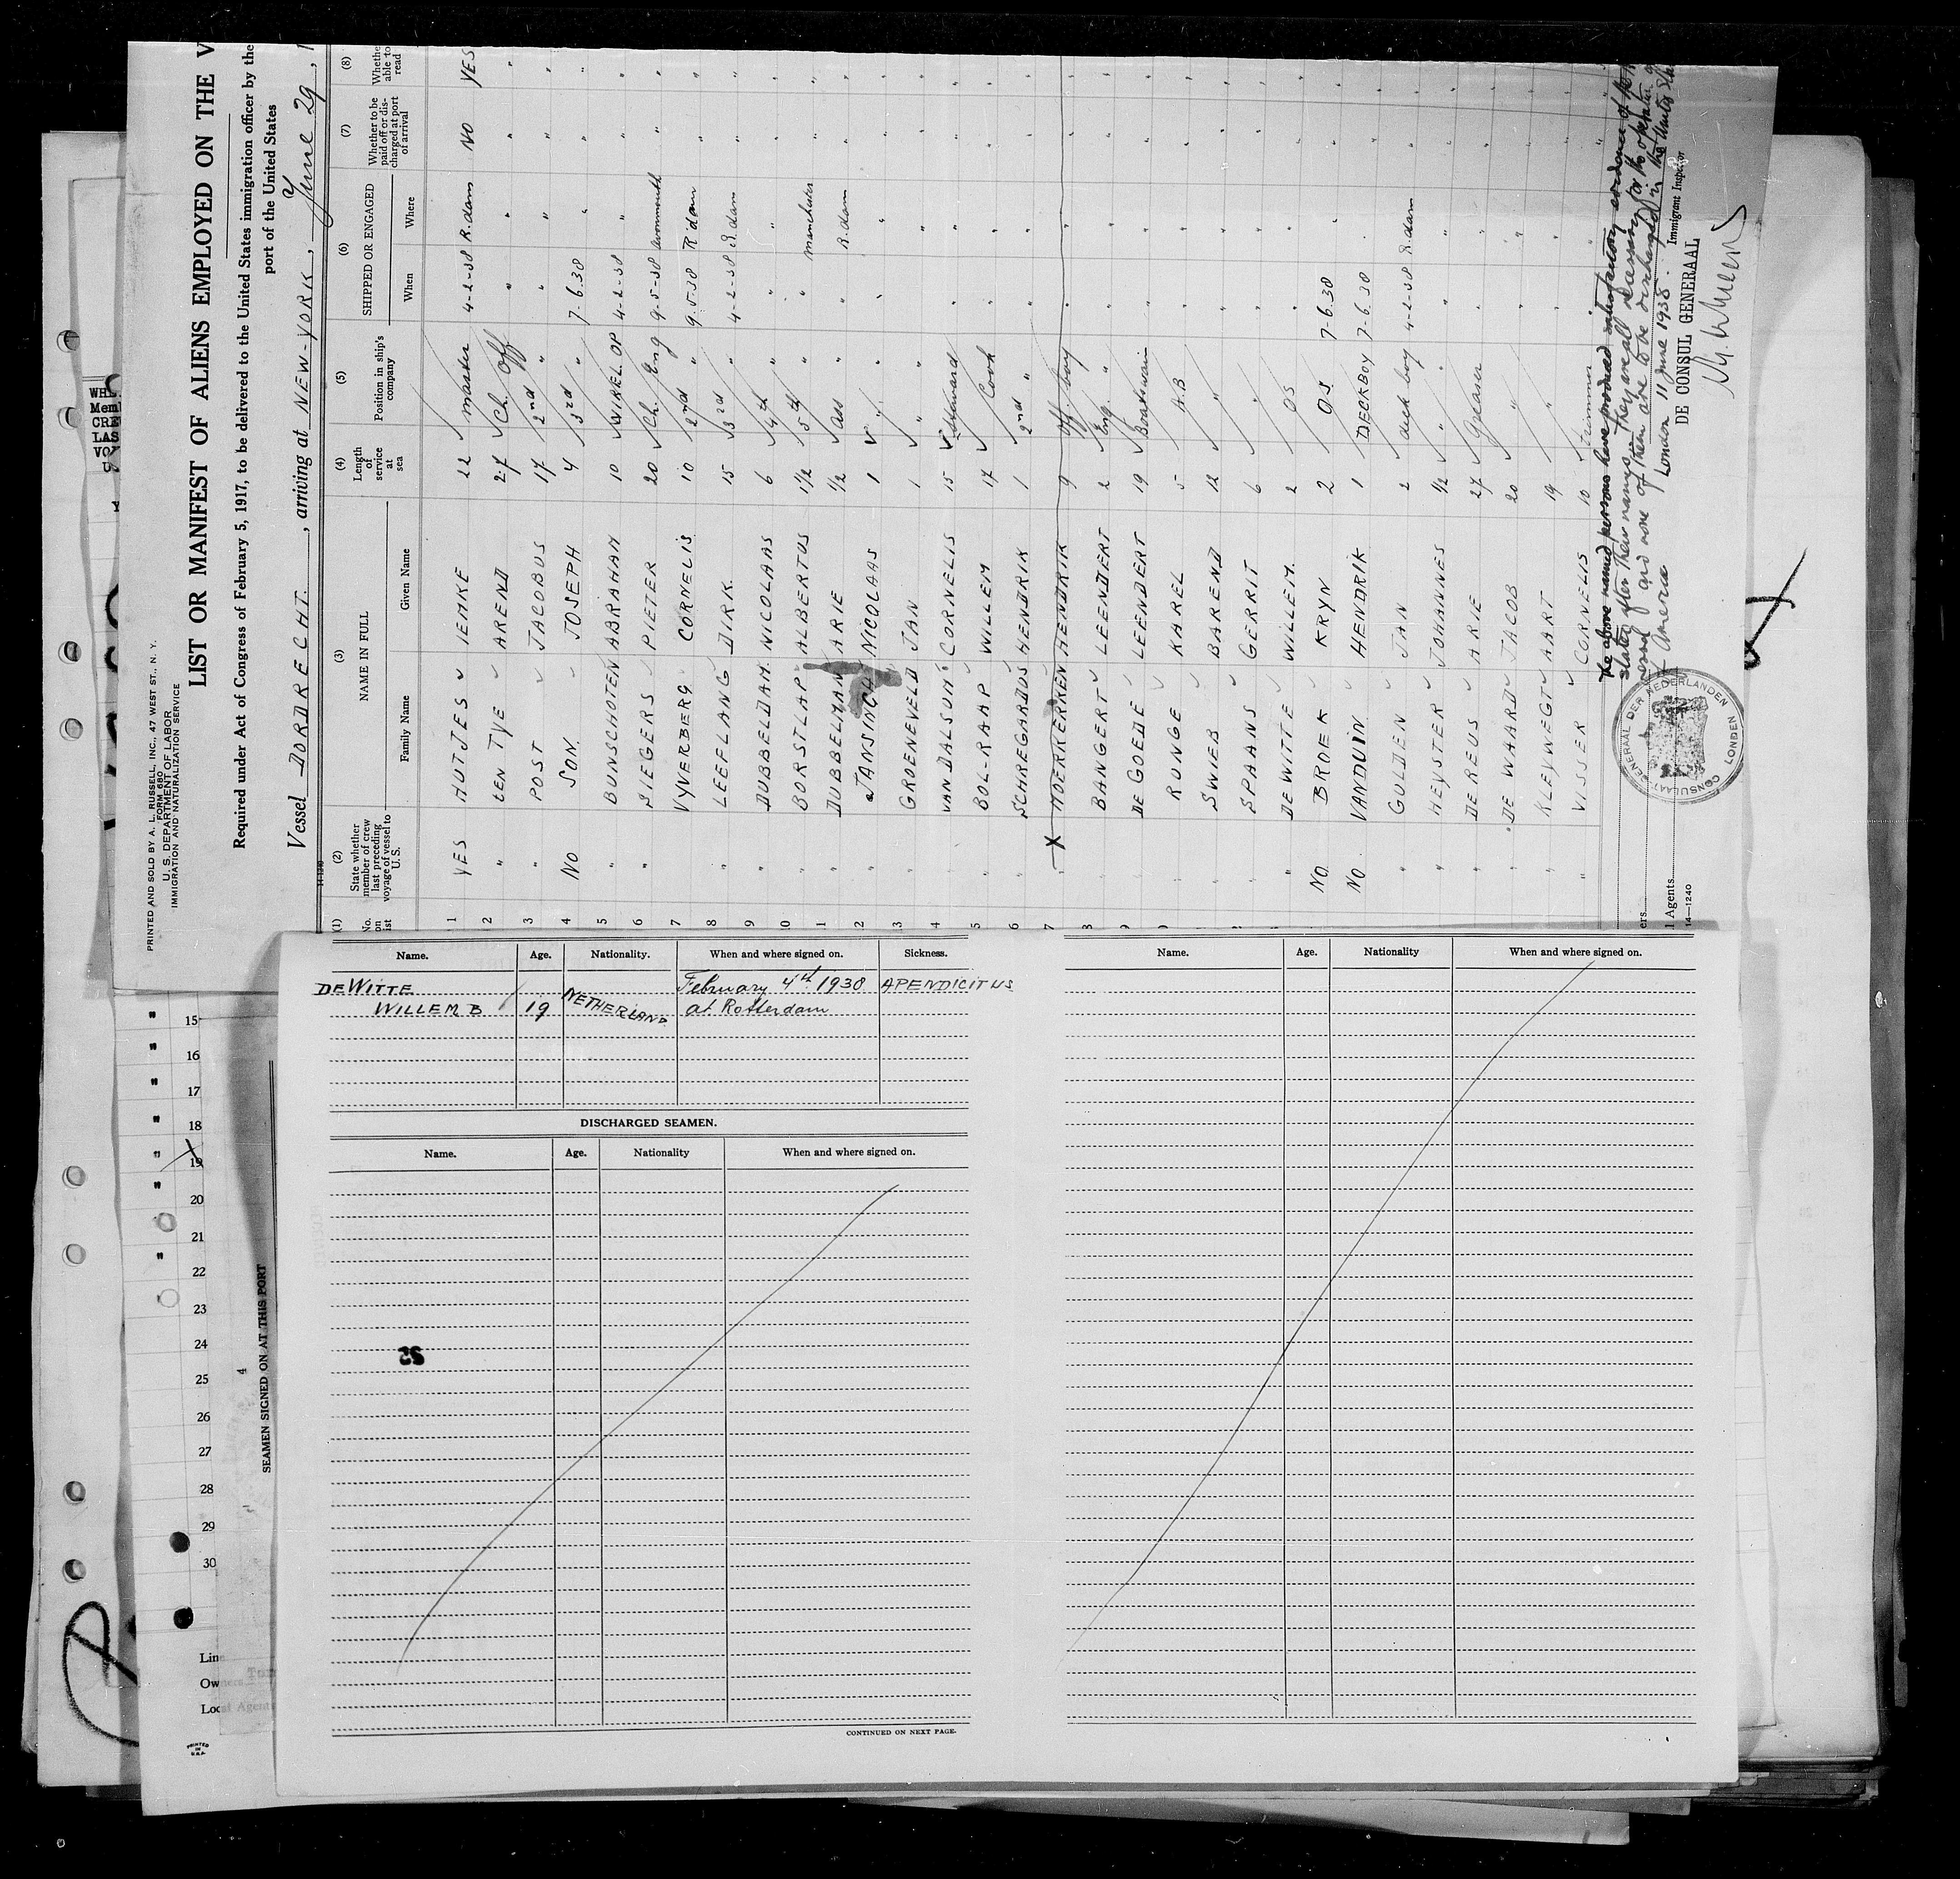 PRINTED AND SOLD BY A. L. RUSSELL, INC., 47 WEST ST., N. Y.
FORM 680
U. S. DEPARTMENT OF LABOR
IMMIGRATION AND NATURALIZATION SERVICE
LIST OR MANIFEST OF ALIENS EMPLOYED ON THE V
Required under Act of Congress of February 5, 1917, to be delivered to the United States immigration officer by the
port of the United States
Vessel DORDRECHT. , arriving at NEW-YORK , June 29 , 1
14-1240
(1) (2) (3) (4) (5) (6) (7) (8)
No. on list State whether member of crew last preceding voyage of vessel to U.S. NAME IN FULL Length of service at sea Position in ship's company SHIPPED OR ENGAGED Whether to be paid off or discharged at port of arrival Whether able to read
Family Name Given Name When Where
1 YES HUTJES IEMKE 22 master 4-2-38 R.dam NO YES
2 " TEN TYE AREND 27 Ch. Off " " " "
3 " POST JACOBUS 17 2nd " " " " "
4 NO SON JOSEPH 4 3rd " 7-6.38 " " "
5 " BUNSCHOTEN ABRAHAM 10 WIREL. OP 4-2-38 " " "
6 " SIEGERS PIETER 20 Ch. Eng 9-5-38 avonmouth " "
7 VYVERBERG CORNELIS 10 2nd " 9.5-38 R'dam " "
8 " LEEFLANG DIRK 15 3rd " 4-2-38 R.dam " "
9 " DUBBELDAM NICOLAAS 6 4th " " " " "
10 " BORSTLAP ALBERTUS 1½ 5th " " manchester " "
1 " DUBBELMAN ARIE ½ ass " " R.dam " "
2 " JANSINGH NICOLAAS 1 " " " " "
3 " GROENEVELD JAN 1 " " "
4 " VAN DALSUM CORNELIS 15 Steward " " " "
5 " BOL-RAAP WILLEM 17 Cook " " " "
6 " SCHREGARDUS HENDRIK 1 2nd " " " " "
7 X " MOERKERKEN HENDRIK 9 Off boy " " " "
8 " BANGERT LEENDERT 2 Eng. " " " " "
9 " DE GOEDE LEENDERT 19 Boatswain " " " "
RUNGE KAREL 5 A.B " " " "
SWIEB BAREND 12 " " " " "
SPAANS GERRIT 6 " " " " "
" DE WITTE WILLEM. 2 OS " " " "
NO. BROEK KRYN 2 OS 7-6.38 " " "
NO. VANDUIN HENDRIK 1 DECKBOY 7-6.38 " " "
" GULDEN JAN 2 deck boy 4-2-38 R.dam " "
" HEYSTER JOHANNES ½ " " " " "
" DE REUS ARIE 27 Greaser " " " "
" DE WAARD JACOB 20 " " " " "
" KLEYWEGT AART 19 " " " " "
" VISSER CORNELIS 10 Trimmer " " " "
The above named persons have produced satisfactory evidence of
stated after their names. They are all
and none of them are to be discharged in the United States
of America London 11 June 1938.
Immigrant Inspector
DE CONSUL GENERAAL
CONSULAAT GENERAAL DER NEDERLANDEN LONDEN
Agents
14—1240
Name. Age. Nationality. When and where signed on. Sickness.
DE WITTE February 4th 1938 APENDICITUS
WILLEM B 19 NETHERLAND at Rotterdam
DISCHARGED SEAMEN.
Name. Age. Nationality When and where signed on.
CONTINUED ON NEXT PAGE.
Name. Age. Nationality When and where signed on.
SEAMEN SIGNED ON AT THIS PORT
4
" 15
" 16
" 17
" 18
" 19
" 20
21
" 22
23
24
25
26
27
28
29
30
Line
Owners
Local Agents
PRINTED IN U.S.A.